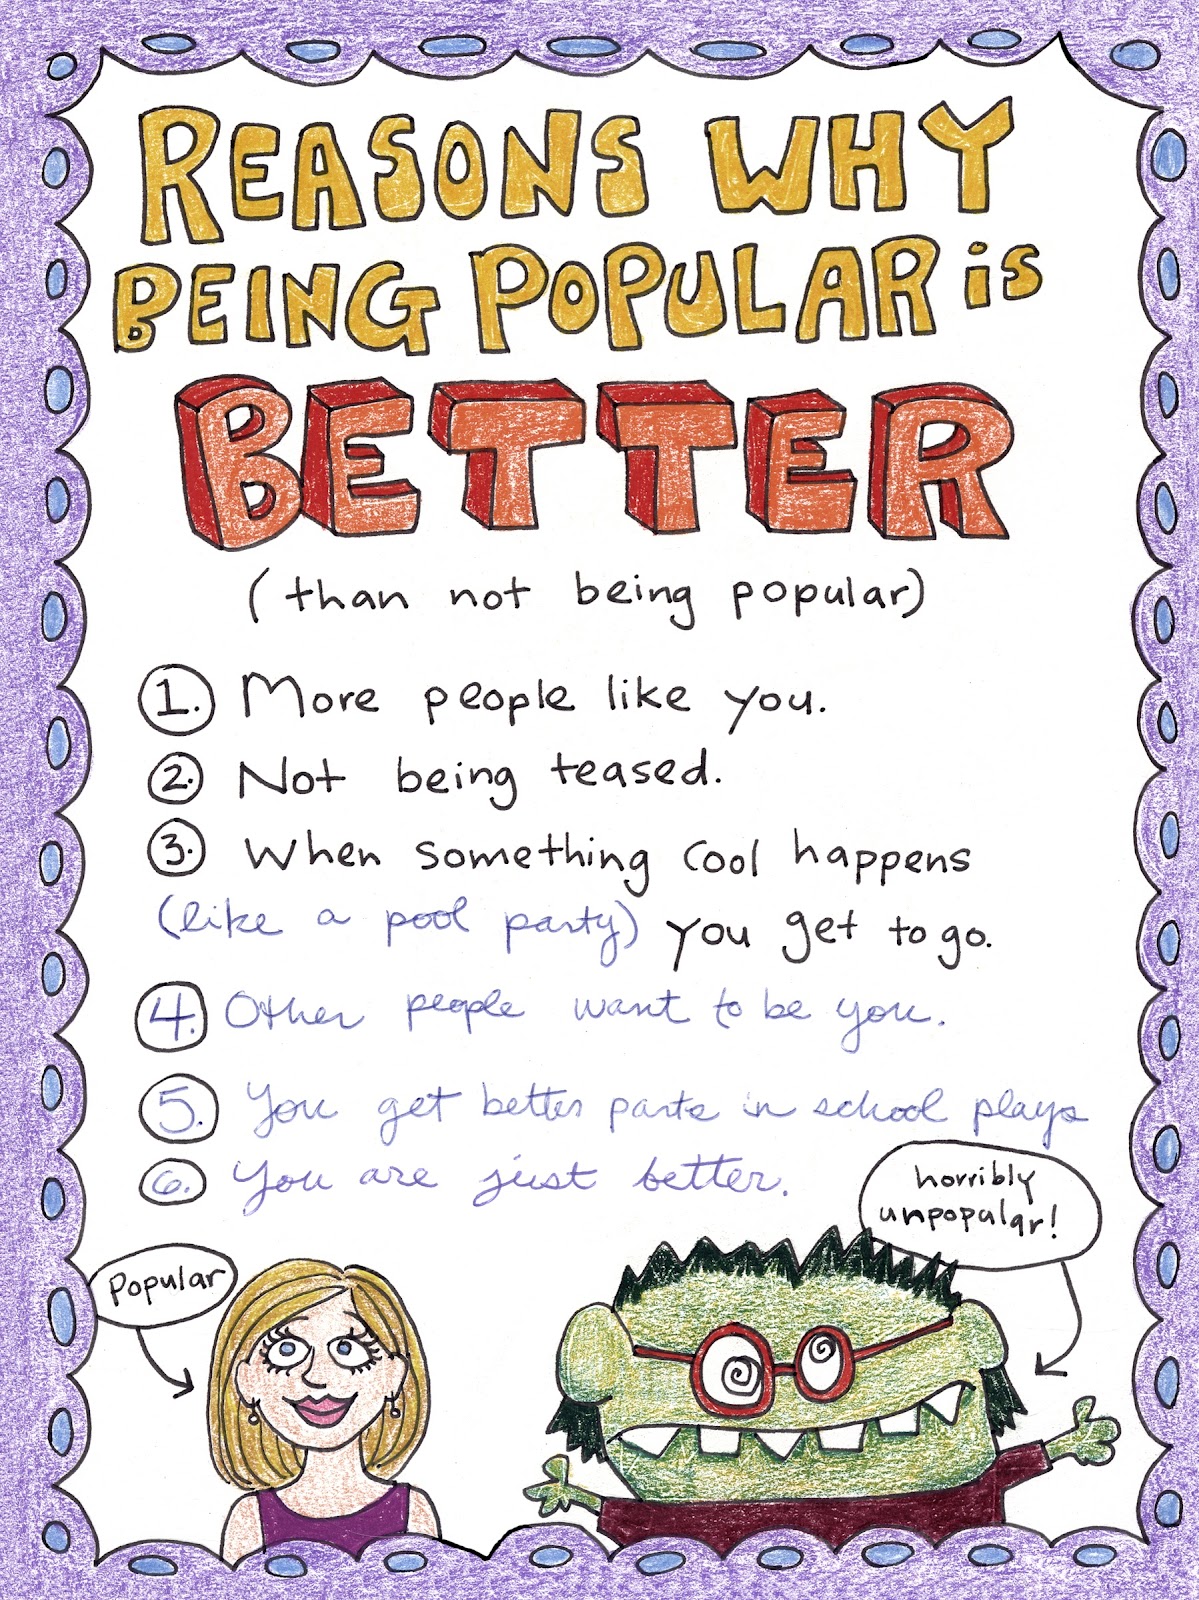 REASONS WHY
BEING POPULAR is
BETTER
(than not being popular)
1. More people like you.
2. Not being teased.
3. When something cool happens
(like a pool party) you get to go.
4. Other people want to be you.
5. You get better parts in school plays
6. You are just better.
horribly
unpopular!
popular